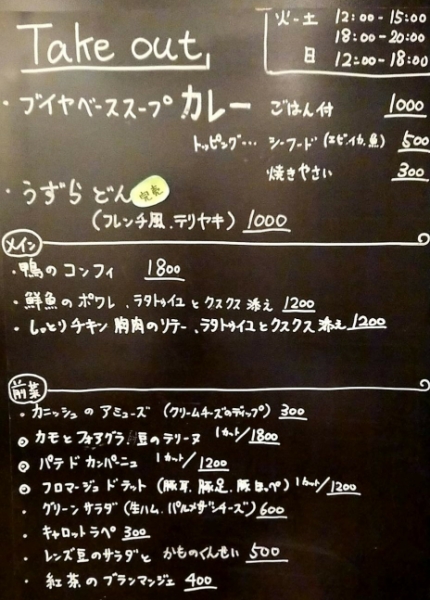 Take out
火-土 12:00-15:00
18:00-20:00
日 12:00-18:00
・ブイヤベーススープ カレー ごはん付 1000
トッピング… シーフード(エビ、イカ、魚) 500
焼きやさい 300
・うずら どん 完売
(フレンチ風、テリヤキ) 1000
メイン
・鴨のコンフィ 1800
・鮮魚のポワレ、ラタトゥイユとクスクス添え 1200
・しっとりチキン胸肉のソテー、ラタトゥイユとクスクス添え 1200
前菜
・カニッシュのアミューズ (クリームチーズのディップ) 300
◎カモとフォアグラ、豆のテリーヌ 1カット/1800
◎パテドカンパーニュ 1カット/1200
◎フロマージュドテット (豚耳、豚足、豚ほっぺ) 1カット/1200
・グリーンサラダ (生ハム、パルメザンチーズ) 600
・キャロットラペ 300
・レンズ豆のサラダと かものくんせい 500
・紅茶のブランマンジェ 400